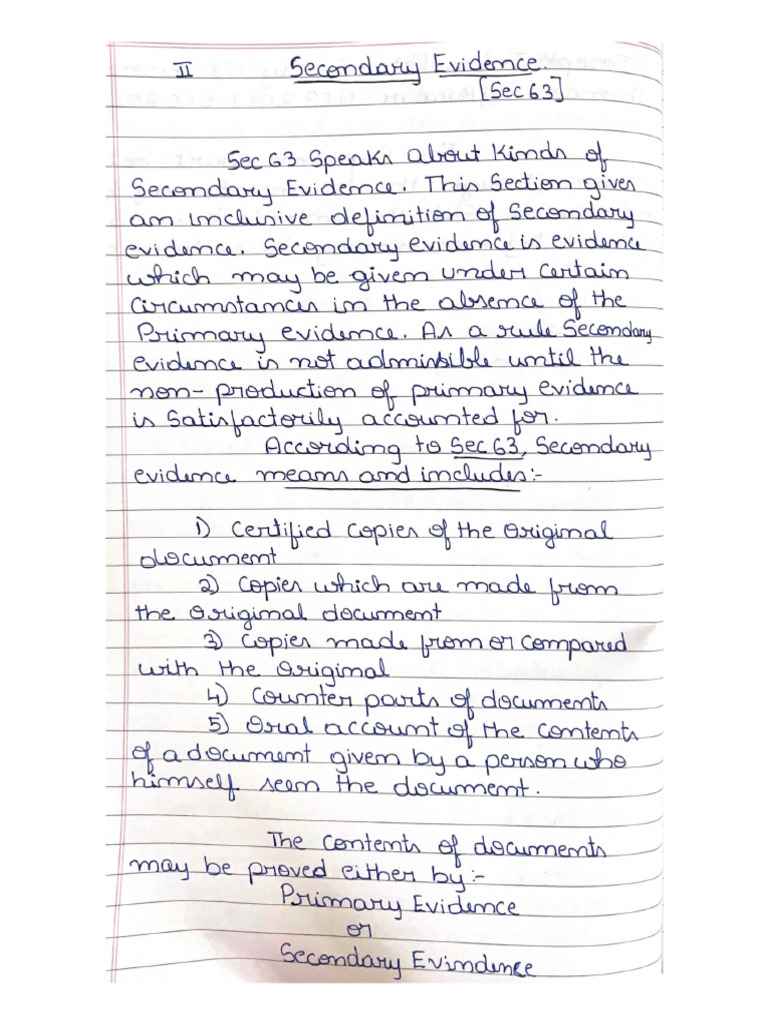 II Secondary Evidence.
[Sec 63]
Sec 63 Speaks about Kinds of
Secondary Evidence. This Section gives
an inclusive definition of Secondary
evidence. Secondary evidence is evidence
which may be given under certain
circumstances in the absence of the
Primary evidence. As a rule Secondary
evidence is not admissible until the
non-production of primary evidence
is satisfactorily accounted for.
According to Sec 63, Secondary
evidence means and includes:-
1) Certified copies of the Original
document
2) Copies which are made from
the Original document
3) Copies made from or compared
with the original
4) Counter parts of documents
5) Oral account of the contents
of a document given by a person who
himself seen the document.
The contents of documents
may be proved either by:-
Primary Evidence
or
Secondary Evindence